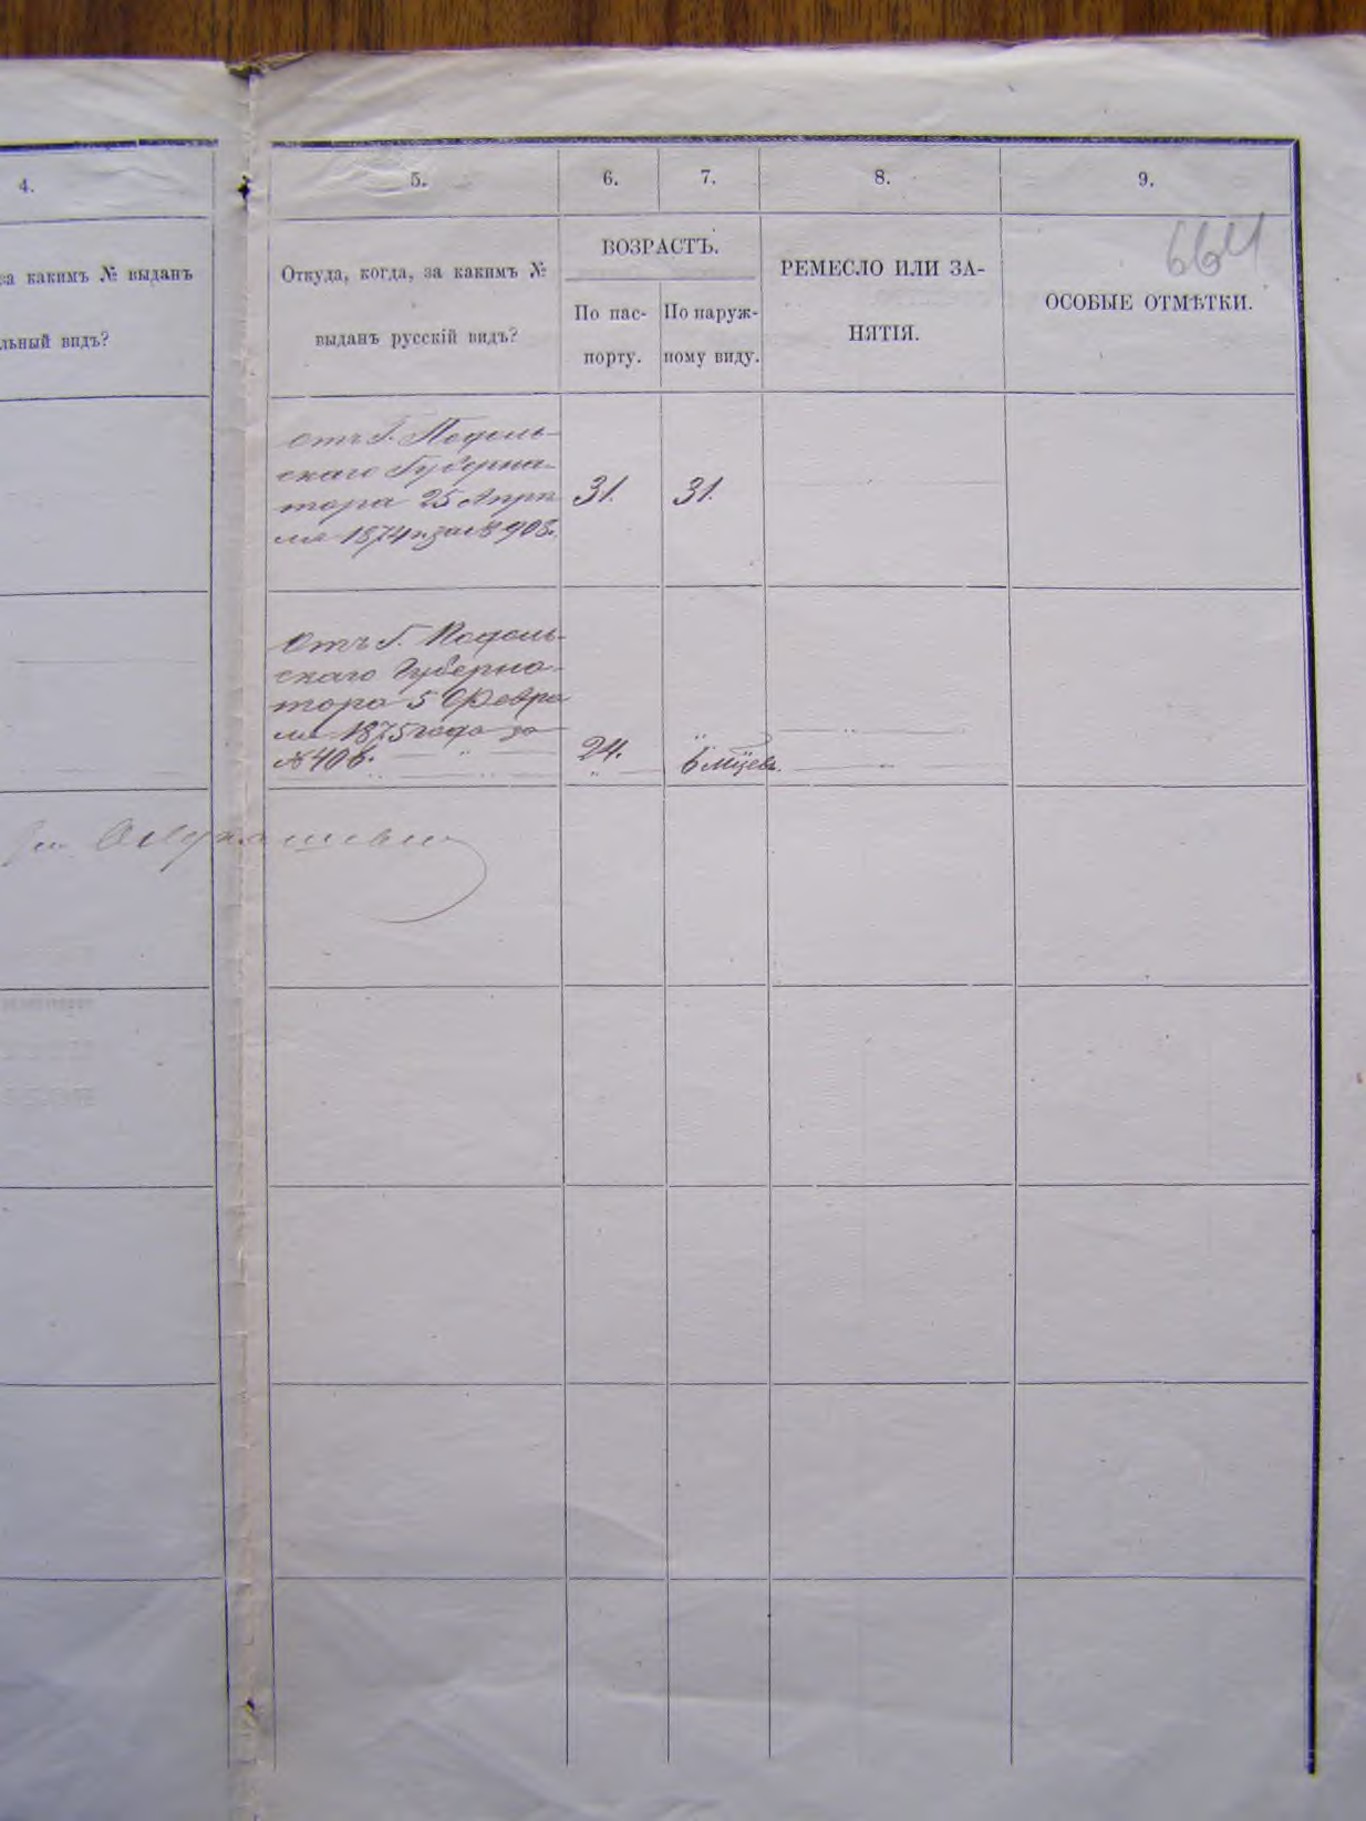 4.
5.
6.
7.
8.
9.
664
за какимъ № выданъ
льный видъ?
Откуда, когда, за какимъ №
выданъ русскій видъ?
ВОЗРАСТЪ.
По пас-
порту.
По наруж-
ному виду.
РЕМЕСЛО ИЛИ ЗА-
НЯТІЯ.
ОСОБЫЕ ОТМѢТКИ.
Отъ Г. Подоль-
скаго Губерна-
тора 25 Апрѣ
ля 1874 г. за № 908.
31.
31.
Отъ Г. Подоль-
скаго Губерна-
тора 5 Февра
ля 1875 года за
№ 406.
24.
6 мцевъ.